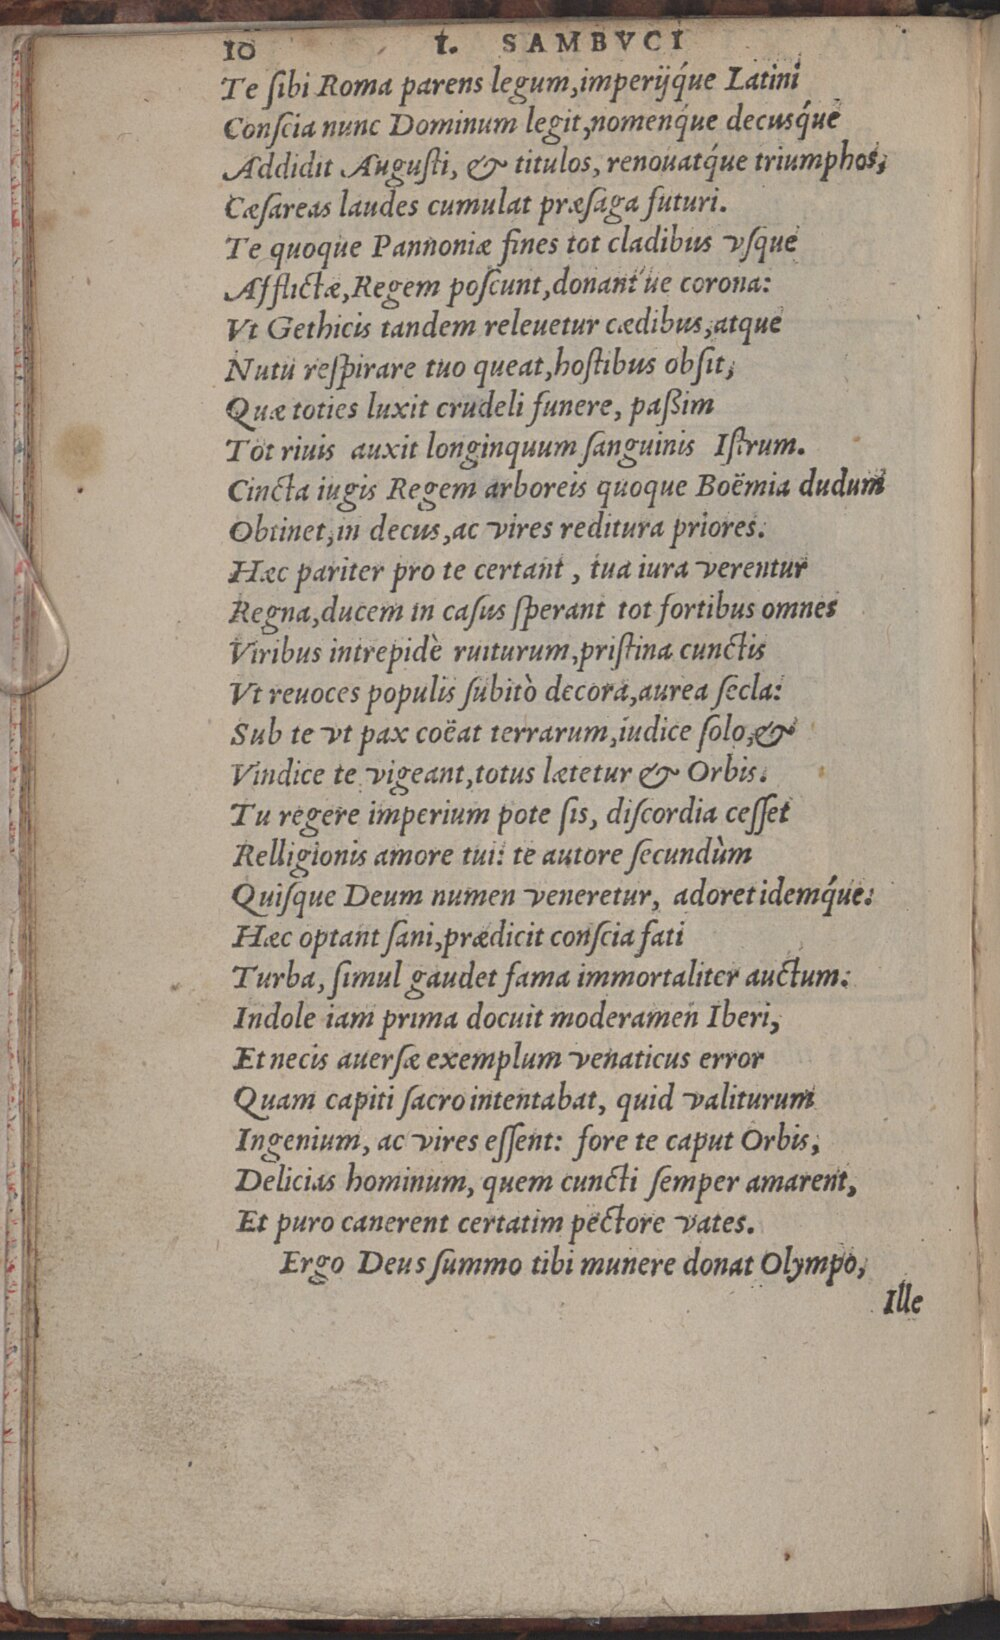 10 I. SAMBVCI
Te ſibi Roma parens legum,imperijq́ue Latini
Conſcia nunc Dominum legit,nomenq́ue decusq́ue
Addidit Auguſti, & titulos, renouatq́ue triumphos,
Cæſareas laudes cumulat præſaga futuri.
Te quoque Pannoniæ fines tot cladibus vſque
Afflictæ,Regem poſcunt,donant ́ue corona:
Vt Gethicis tandem releuetur cædibus,atque
Nutu reſpirare tuo queat,hoſtibus obſit,
Quæ toties luxit crudeli funere, paßim
Tot riuis auxit longinquum ſanguinis Iſtrum.
Cincta iugis Regem arboreis quoque Boëmia dudum
Obtinet,in decus,ac vires reditura priores.
Hæc pariter pro te certant, tua iura verentur
Regna,ducem in caſus ſperant tot fortibus omnes
Viribus intrepidè ruiturum,priſtina cunctis
Vt reuoces populis ſubitò decora,aurea ſecla:
Sub te vt pax coëat terrarum,iudice ſolo,&
Vindice te vigeant,totus lætetur & Orbis.
Tu regere imperium pote ſis, diſcordia ceſſet
Relligionis amore tui: te autore ſecundùm
Quiſque Deum numen veneretur, adoret idemq́ue:
Hæc optant ſani,prædicit conſcia fati
Turba, ſimul gaudet fama immortaliter auctum:
Indole iam prima docuit moderamen Iberi,
Et necis auerſæ exemplum venaticus error
Quam capiti ſacro intentabat, quid valiturum
Ingenium, ac vires eſſent: fore te caput Orbis,
Delicias hominum, quem cuncti ſemper amarent,
Et puro canerent certatim pectore vates.
Ergo Deus ſummo tibi munere donat Olympo,
Ille